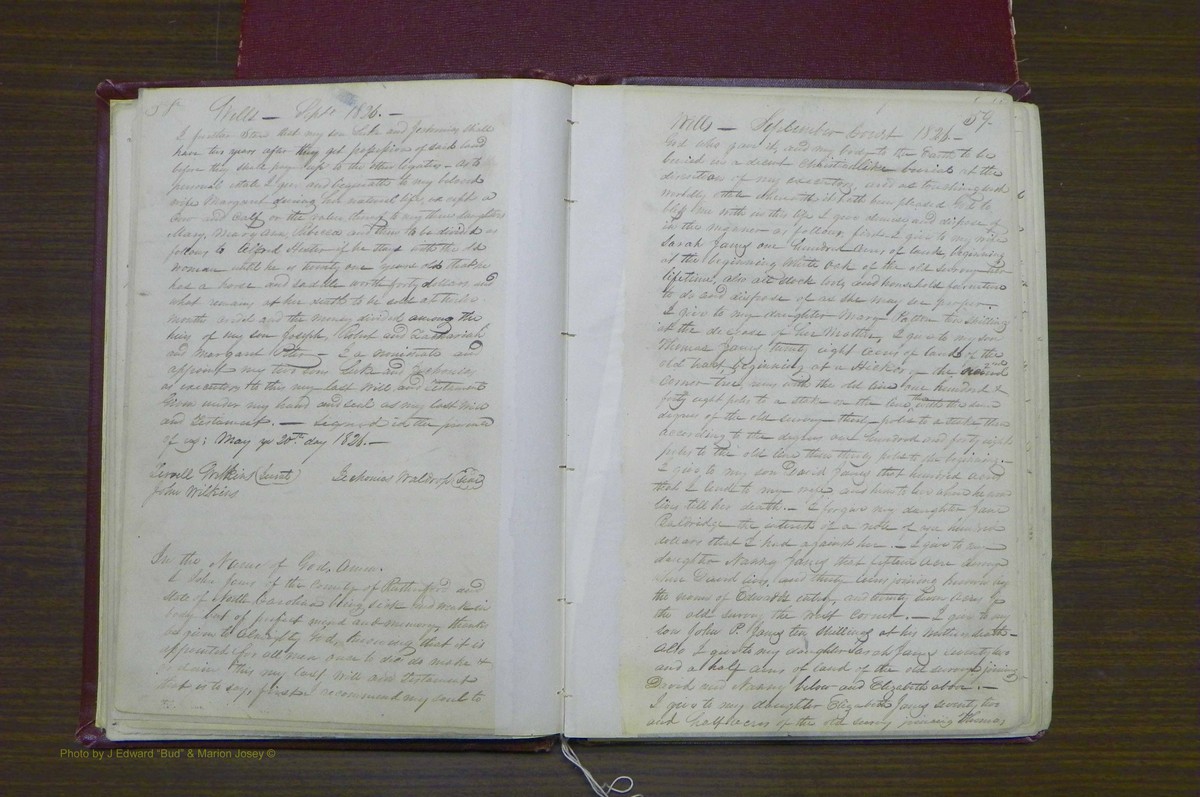 58 Wills — Sept 1826. —
I further that my son Luke and shall
have two years after they get possession of said land
before they shall pay to the other legatees - as to
personal estate I give and bequeath to my beloved
wife Margaret during her natural life except a
Cow and Calf or the value thereof to my three daughters
Mary, Mary Ann, and then to be divided as
follows to Alfred if he stays with the old
woman until he is twenty one years old that he
has a horse and saddle worth forty dollars and
what remains at her death to be sold at twelve
months credit and the money divided among the
heirs of my son Joseph, Robert and Zachariah
and Margaret — I a nominate and
appoint my two sons Luke and
as executors to this my last Will and Testament
Given under my hand and seal as my last Will
and Testament. — signed in the presence
of us: May ye 20th day 1826. —
Terrell Wilkins (Jurat) Zechonias Waldrop (Seal)
John Wilkins
In the Name of God, Amen.
I John James of the County of Rutherford and
State of North Carolina being sick and weak in
body but of perfect mind and memory, thanks
be given to Almighty God, knowing that it is
appointed for all men once to die do make &
ordain this my last Will and Testament
that is to say, first I recommend my soul to
59.
Wills — September Court 1826 —
God who gave it, and my body to the Earth to be
buried in a decent Christianlike burial at the
direction of my executors, and as touching such
worldly estate wherewith it hath been pleased God to
bless me with in this life I give demise and dispose of
in the manner as follows, first I give to my wife
Sarah James one hundred acres of land, beginning
at the beginning White Oak of the old survey her
lifetime, also all stock tools and household furniture
to do and dispose of as she may see proper. —
I give to my daughter Mary Patton ten shillings
at the decease of her Mother, I give to my son
Thomas James twenty eight acres of land of the
old tract, beginning at a Hickory the second
corner tree, runs with the old line one hundred &
forty eight poles to a stake on the line, then with the same
degree of the old survey thirty poles to a stake then
according to the degrees one hundred and forty eight
poles to the old line then thirty poles to the beginning. —
I give to my son David James that hundred acres
that I lend to my wife and him to live where he now
lives till her death. — I forgive my daughter Jane
Baldridge the interest of a note of
dollars that I had against her. — I give to my
daughter Nancy James that fifteen acres
where David lives, and thirty acres joining
the name of Edward's entry, and twenty seven acres of
the old survey the West Corner. — I give to my
son John P. James ten shillings at his Mothers death —
also I give to my daughter Sarah James seventy two
and a half acres of land of the old survey joining
David and Nancy below and Elizabeth above. —
I give to my daughter Elizabeth James seventy two
and half acres of the old survey joining Thomas
Photo by J Edward "Bud" & Marion Josey ©